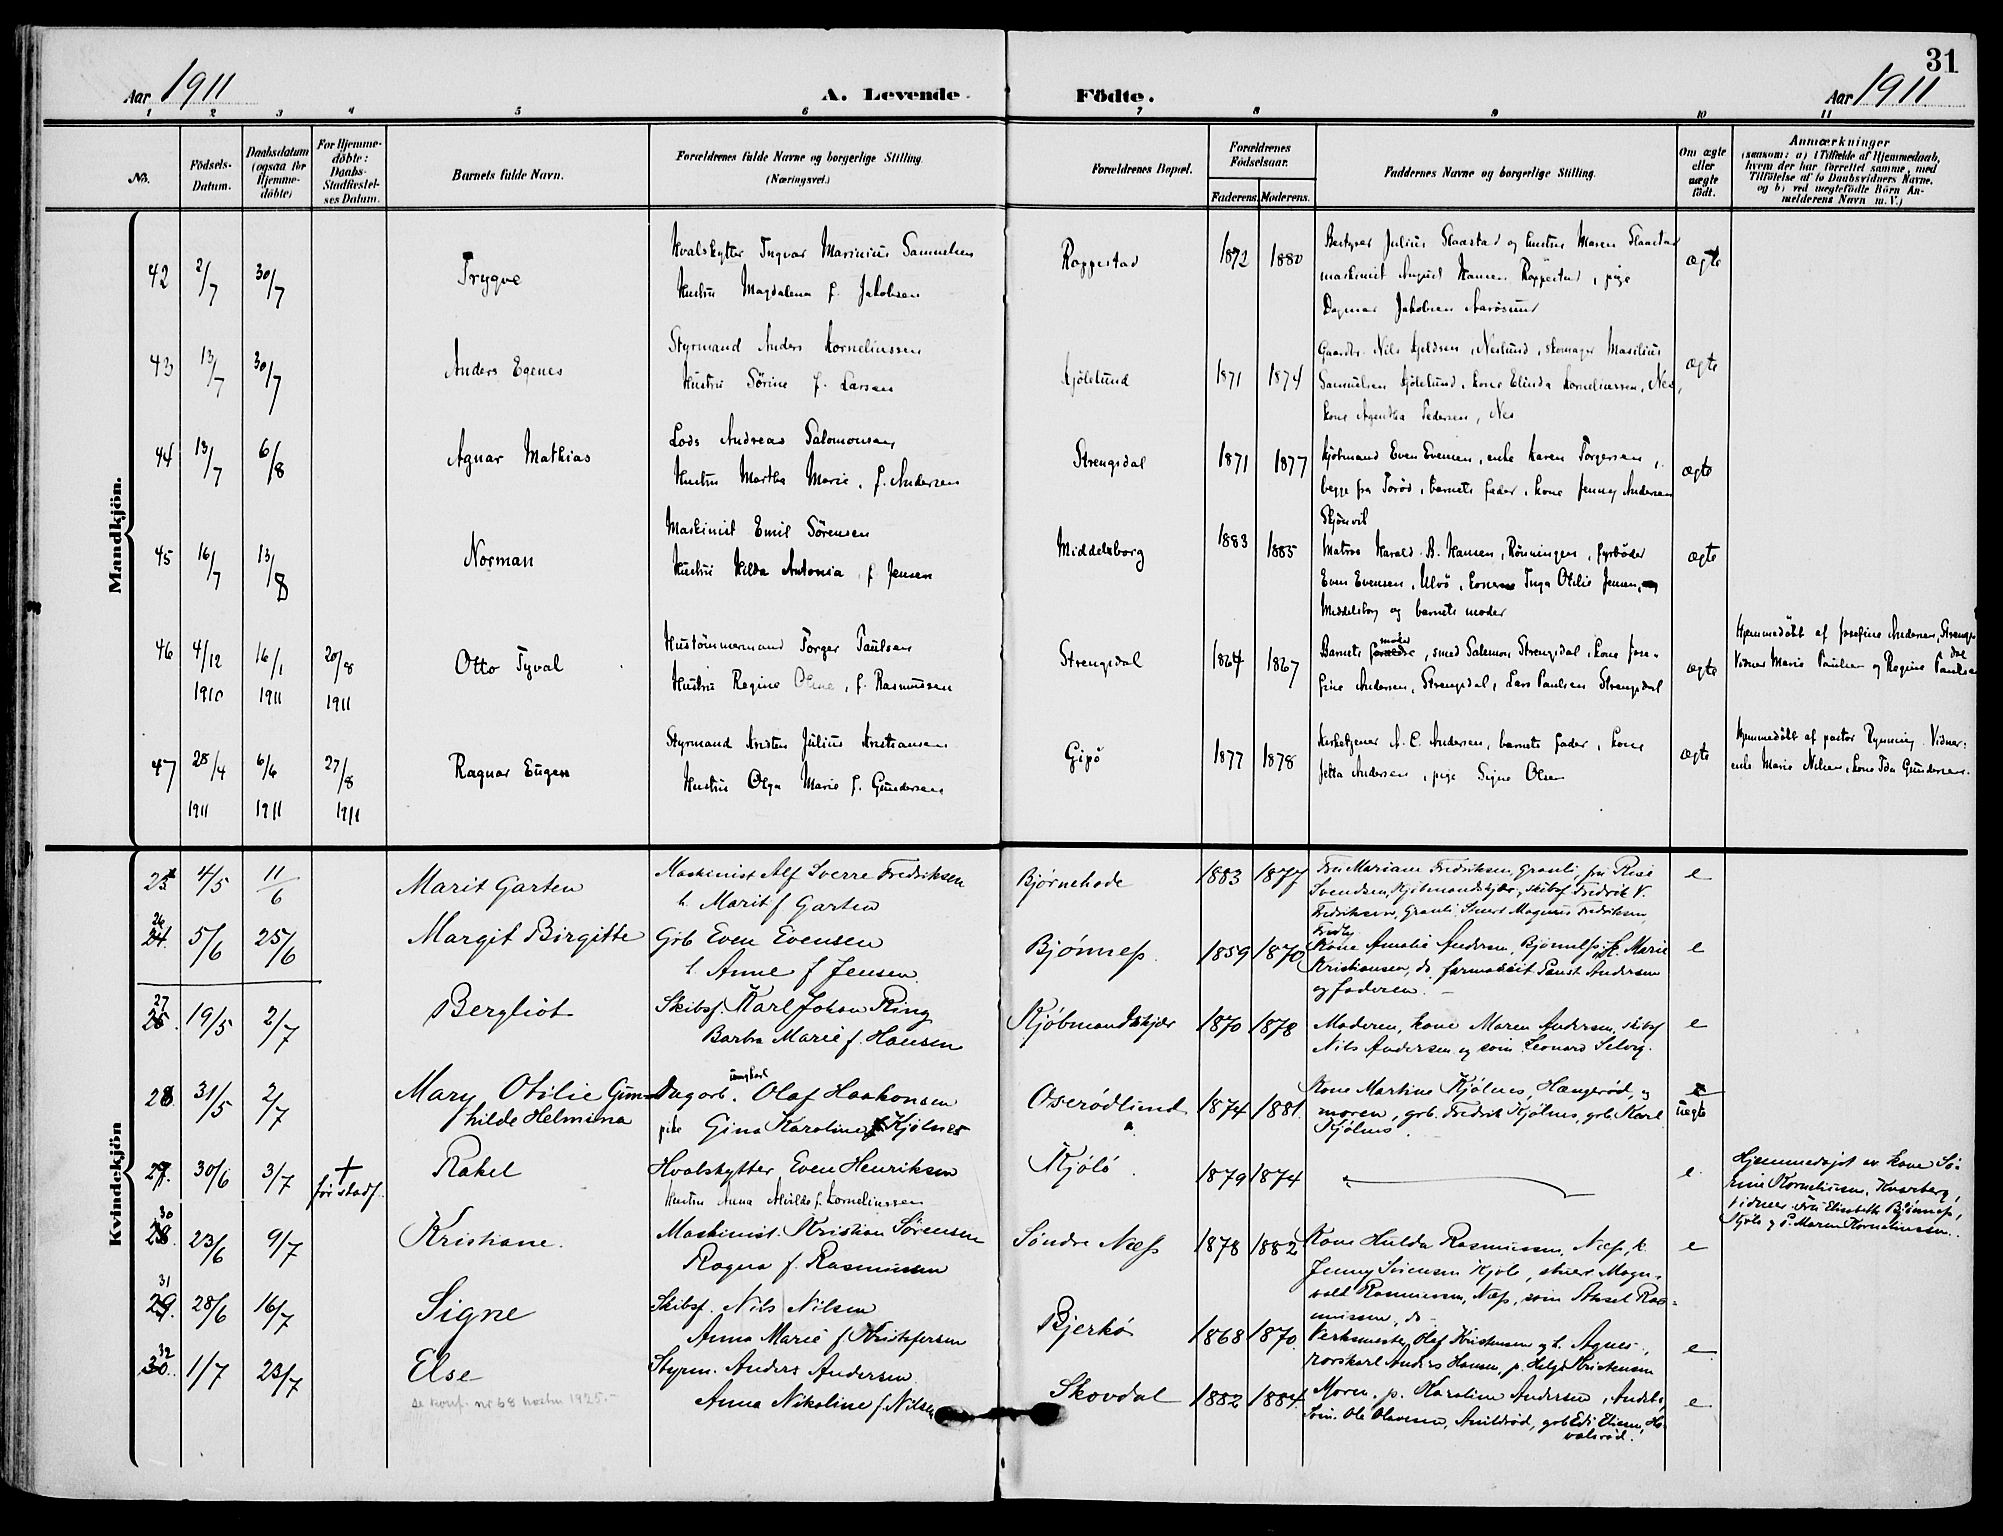 31
Aar 1911
A. Levende
Födte.
Aar 1911
1 2 3 4 5 6 7 8 9 10 11
No.
Födsels-
Datum.
Daabsdatum
(ogsaa for
Hjemme-
döbte)
For Hjemme-
döbte:
Daabs-
Stadfæstel-
ses Datum.
Barnets fulde Navn.
Forældrenes fulde Navne og borgerlige Stilling.
(Næringsvei.)
Forældrenes Bopæl.
Forældrenes
Födselsaar.
Faderens. Moderens.
Faddernes Navne og borgerlige Stilling.
Om ægte
eller
uægte
födt.
Anmærkninger
(saasom: a) i Tilfælde af Hjemmedaab,
hvem der har forrettet samme, med
Tilföielse af to Daabsvidners Navne.
og b) ved uægtefödte Börn An-
melderens Navn m. V.)
Mandkjön.
42 2/7 30/7 Trygve
Hvalskytter Ingvar Marinius Samuelsen
Hustru Magdalena f. Jakobsen
Roppestad 1872 1880
Bestyrer Julius Slaastad og hustru Maren Slaastad
maskinist August Hansen Roppestad, pige
Dagmar Jakobsen Aarösund
ægte
43 13/7 30/7 Anders Egenes
Styrmand Anders Korneliussen
Hustru Sörine f. Larsen
Kjölelund 1871 1874
Gaardbr. Nils Kjeldsen, Neslund, skomager Masilius
Samuelsen Kjölelund, kone Elinda Korneliussen, Nes,
kone Agentha Pedersen, Nes
ægte
44 13/7 6/8 Agnar Mathias
Lods Andreas Salomonsen
Hustru Martha Marie, f. Andersen
Strengsdal 1871 1877
Kjöbmand Even Evensen, enke Karen Torgersen,
begge fra Toröd, barnets fader, kone Jenny Andersen
Skjönvik
ægte
45 16/7 13/8 Norman
Maskinist Emil Sörensen
Hustru Hilda Antonia, f. Jensen
Middelsborg 1883 1885
Matros Harald B. Hansen, Rönningen, fyrböder
Even Evensen, Ulvö, konerne Inga Otilie Jensen,
Middelsborg og barnets moder
ægte
46 4/12 1910 16/1 1911 20/8 1911 Otto Tyval
Hustömmermand Torger Paulsen
Hustru Regine Oline, f. Rasmussen
Strengsdal 1864 1867
Barnets moder, smed Salomon Strengsdal, kone Jose-
fine Andersen, Strengsdal, Lars Paulsen Strengsdal
ægte
Hjemmedöbt af Josefine Andersen, Strengs-
dal
Vidner Marie Paulsen og Regine Paulsen
47 28/4 1911 6/6 1911 27/8 1911 Ragnar Eugen
Styrmand Kristen Julius Kristiansen
Hustru Olga Marie f. Gundersen
Gipö 1877 1878
Kirketjener A. C. Andersen, barnets fader, kone
Jetta Andersen, pige Signe Olsen
ægte
Hjemmedöbt af pastor Rynning. Vidner:
enke Marie Nilsen, kone Ida Gundersen.
Kvindekjön
25 4/5 11/6 Marit Garten
Maskinist Alf Sverre Fredriksen
h. Marit f Garten
Bjørnehode 1883 1877
Fru Mariane Fredriksen, Granli, fru Rise
Svendsen, Kjöbmandskjær, skibsf Fredrik V.
Fredriksen, Granli, Stuert Magnus Fredriksen
e
26 24. 5/6 25/6 Margit Birgitte
Grb Even Evensen
h. Anne f Jensen
Bjønnes 1859 1870
Kone Amalie Andersen, Bjönness, k. Marie
Kristiansen, do,
og faderen. –
e
27 25. 19/5 2/7 Bergliot
Skibsf. Karl Johan Ring
Barba Marie f. Hansen
Kjøbmandskjær 1870 1878
Moderen, kone Maren Andersen, skibsf
Nils Andersen og søm Leonard Selvig.
e
28 31/5 2/7 Mary Otilie Gun-
hilde Helmina
ungkarl
Dagarb. Olaf Haakonsen
pike Gina Karoline Kjølnes
Oserødlund 1874 1881.
Kone Martine Kjölnes, Hængerød, og
moren, grb. Fredrik Kjölnes, grb Karl
Kjölnes.
uægte
29. 30/6 3/7 † før stadf. Rakel
Hvalskytter Even Henriksen
Hustru Anna Alvilde f. Korneliussen
Kjölö 1879 1874
e.
Hjemmedøpt av kone Sø-
rine Korneliussen, Knarberg,
vidner Fru Elisabeth Bjønnes,
Kjölö og P. Maren Korneliussen.
30 28. 23/6 9/7 Kristiane.
Maskinist. Kristian Sørensen
Ragna f. Rasmussen
Søndre Næss 1878 1882
Kone Hulda Rasmussen, Næss, k.
Jenny Sørensen Kjölö, stuer Magn-
vald Rasmussen, Næss, søm Aksel Ras-
mussen, do –
e
31 29. 28/6 16/7 Signe
Skibsf. Nils Nilsen
Anna Marie f Kristofersen
Bjerkö 1868 1870.
Verksmester Olaf Kristensen og h. Agnes,
rorskarl Anders Hansen, p. Helga Kristensen
e
32 30. 1/7 23/7 Else
Styrm. Anders Andersen.
Anna Nikoline f Nilsen
Skovdal 1882 1884.
Moren, p. Karoline Andersen,
Søm. Ole Olavesen, grb Edv Eliassen,
e
se konf. nr 68 høsten 1925. –